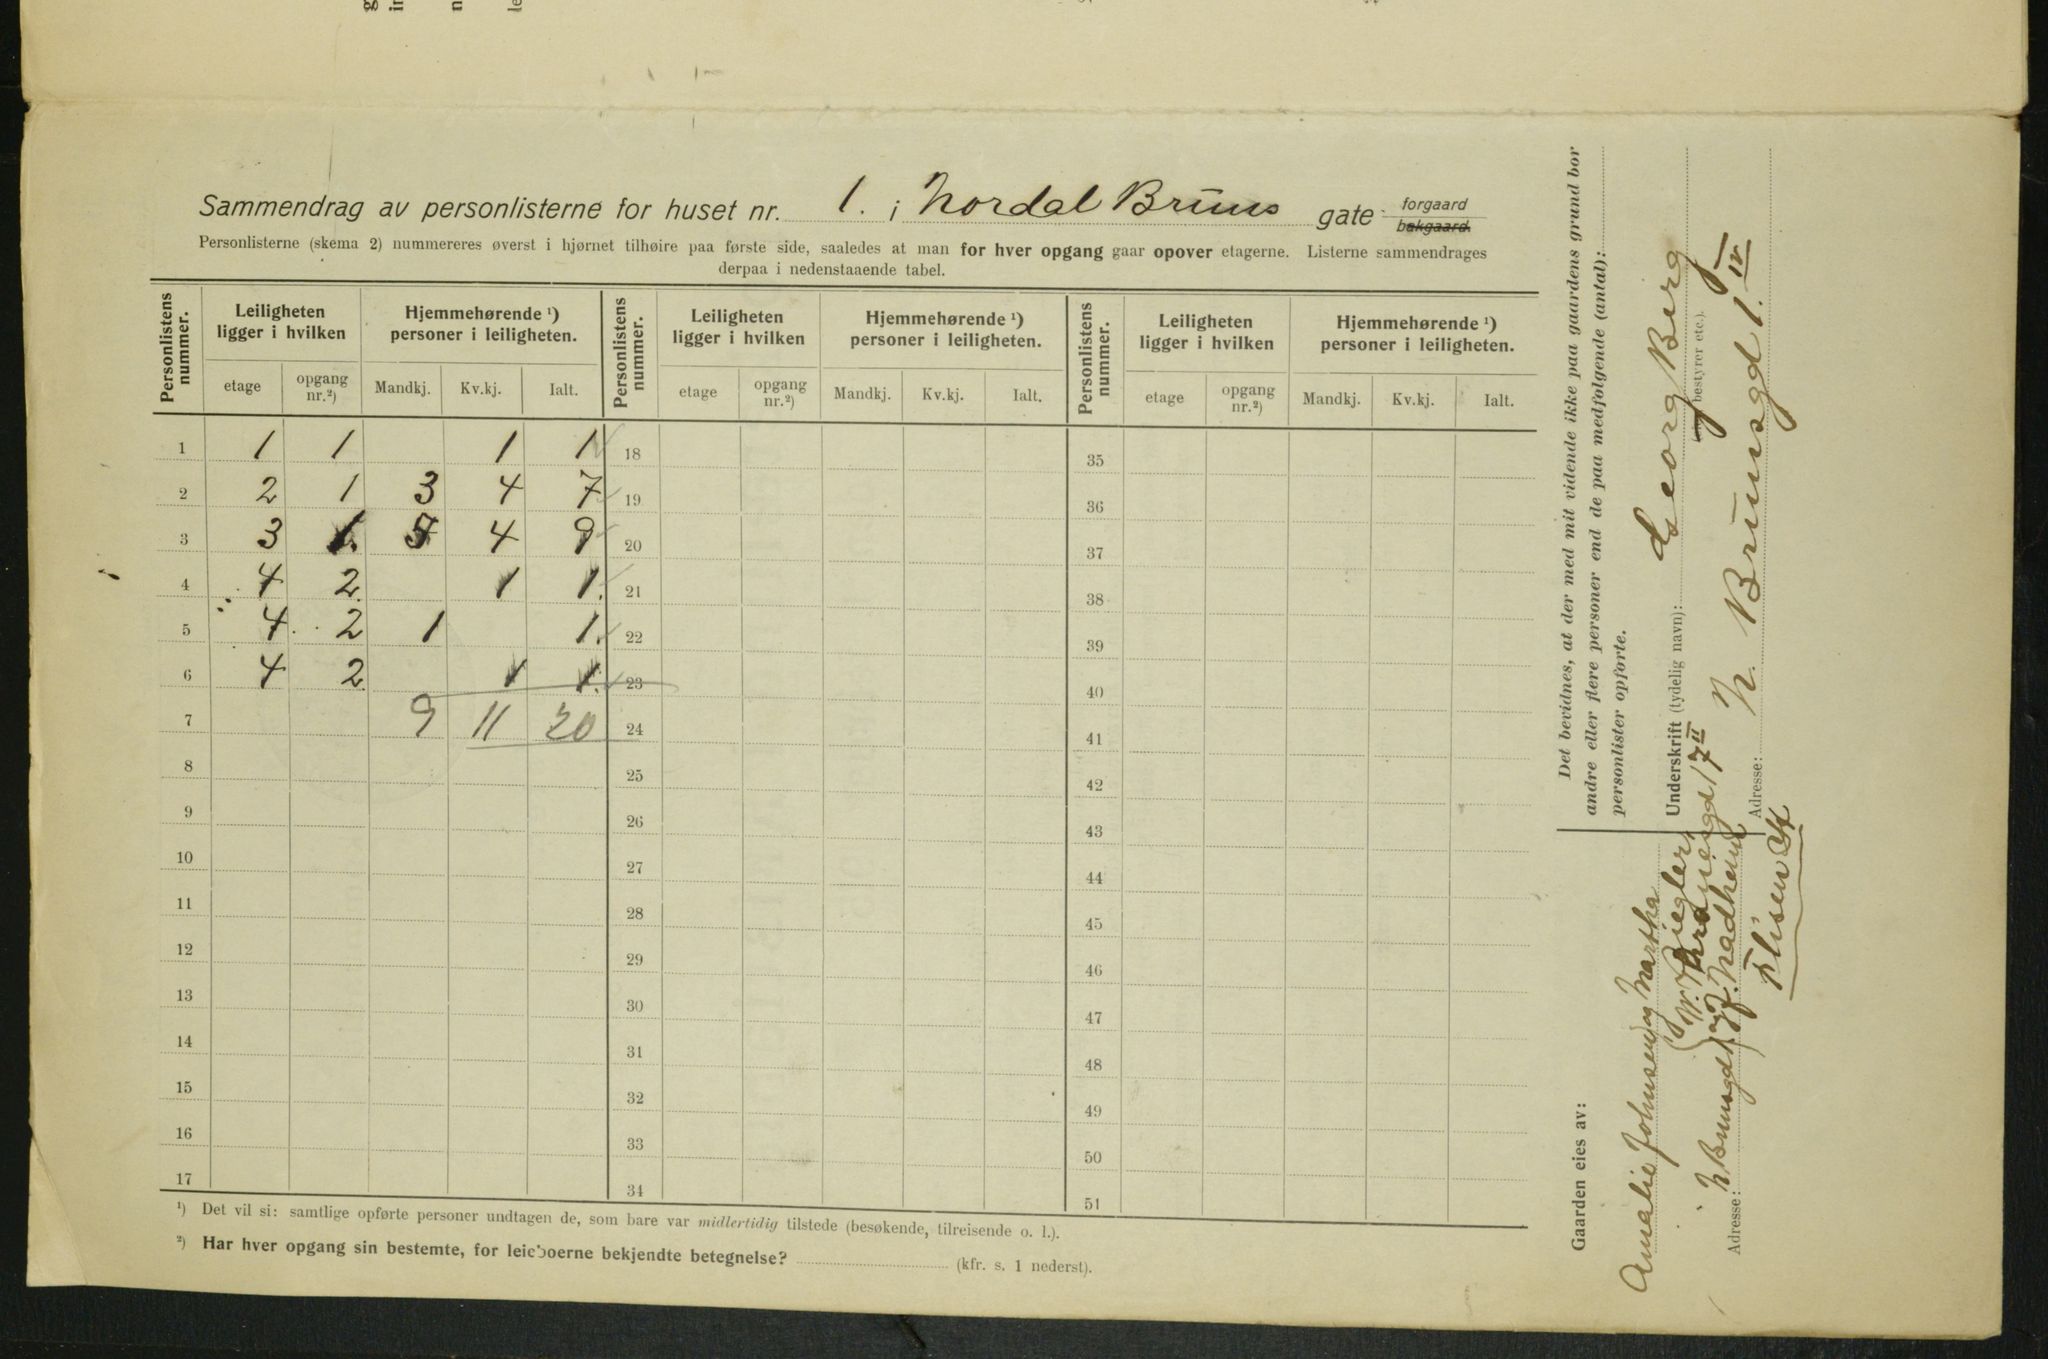 Sammendrag av personlisterne for huset nr. 1. i Nordal Bruns gate forgaard bakgaard.
Personlisterne (skema 2) nummereres øverst i hjørnet tilhøire paa første side, saaledes at man for hver opgang gaar opover etagerne. Listerne sammendrages
derpaa i nedenstaaende tabel.
Personlistens nummer. Leiligheten ligger i hvilken Hjemmehørende ¹) personer i leiligheten. Personlistens nummer. Leiligheten ligger i hvilken Hjemmehørende ¹) personer i leiligheten. Personlistens nummer. Leiligheten ligger i hvilken Hjemmehørende ¹) personer i leiligheten.
etage opgang nr.²) Mandkj. Kv.kj. Ialt. etage opgang nr.²) Mandkj. Kv.kj. Ialt. etage opgang nr.²) Mandkj. Kv.kj. Ialt.
1 1 1 1 1 18 35
2 2 1 3 4 7 19 36
3 3 1. 5 4 9 20 37
4 4 2. 1 1. 21 38
5 4. 2 1 1. 22 39
6 4 2. 1 1. 23 40
7 9 11 20 24 41
8 25 42
9 26 43
10 27 44
11 28 45
12 29 46
13 30 47
14 31 48
15 32 49
16 33 50
17 34 51
¹) Det vil si: samtlige opførte personer undtagen de, som bare var midlertidig tilstede (besøkende, tilreisende o. l.).
²) Har hver opgang sin bestemte, for leieboerne bekjendte betegnelse? (kfr. s. 1 nederst).
Det bevidnes, at der med mit vidende ikke paa gaardens grund bor
andre eller flere personer end de paa medfølgende (antal):
personlister opførte.
Underskrift (tydelig navn): Georg Berg
bestyrer etc.).
Adresse: N. Brunsgd 1. IV
Gaarden eies av:
Amalie Johnsen og Martha
17 II
Adresse: N Brunsgd 1.